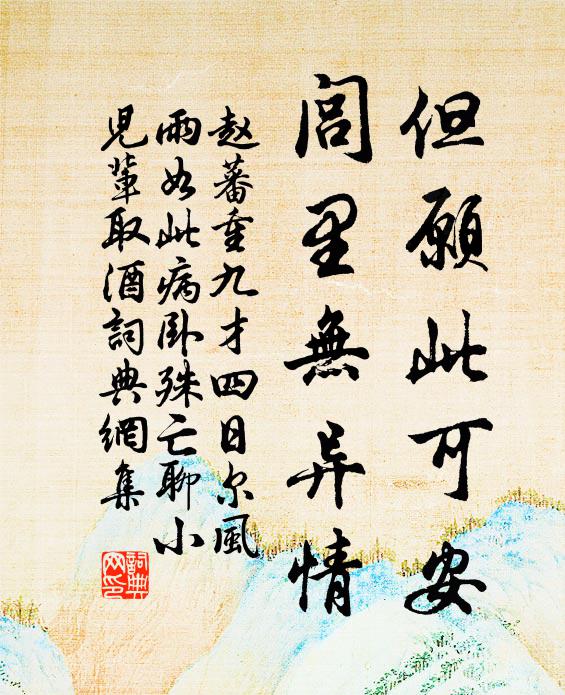 但願此可安
閭里無异情
赵蕃重九才四日尔風
雨如此病卧殊亡聊小
児輩取酒詞典網集
詞典网印